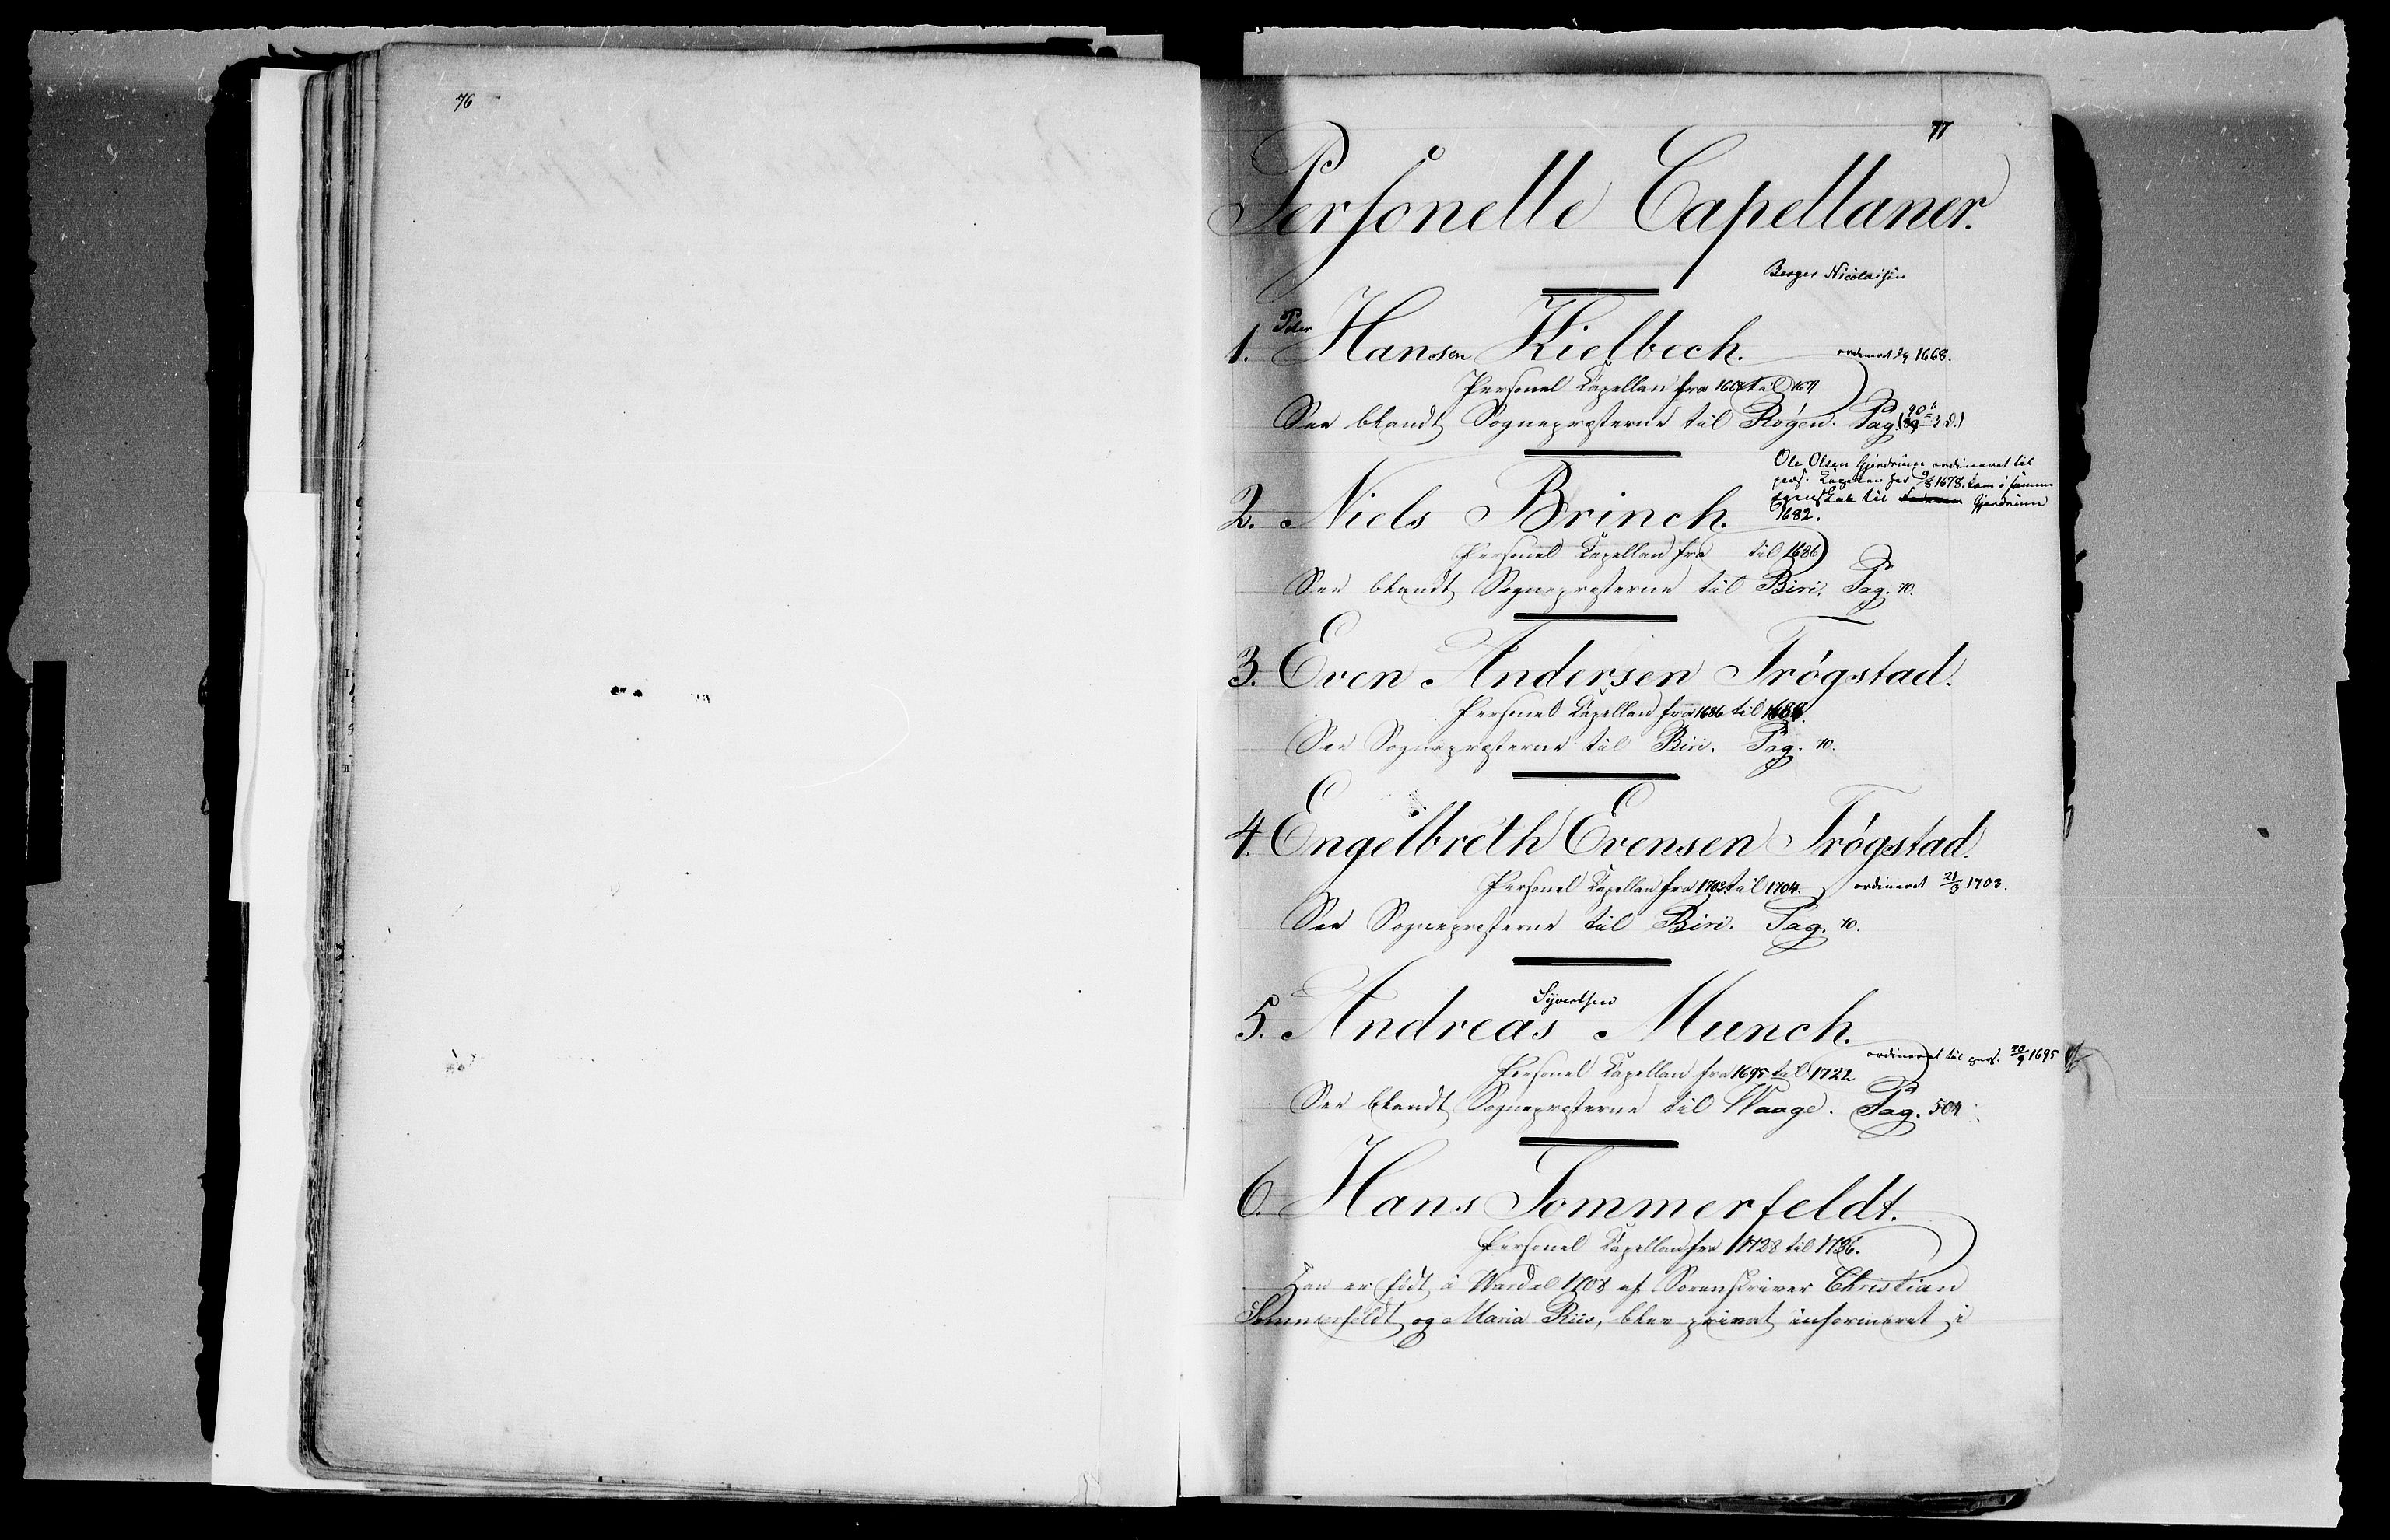 76
77
Personelle Capellaner.
Berger Nicolaisen
1. Peter Hansen Kielbech. ordineret 1668.
Personel Kapellan fra 1668 til 1671
See blandt Sognepræsterne til Røgen. Pag.
Ole Olsen Gjerdrum ordineret til
pers. Kapellan her 9/8 1678. kom i samme
Egenskab til Gjerdrum
1682.
2. Niels Brinch.
Personel Kapellan fra til 1686
See blandt Sognepræsterne til Biri. Pag. 10.
3. Even Andersen Trøgstad.
Personel Kapellan fra 1686 til 1688.
See Sognepræsterne til Biri. Pag. 10.
4. Engelbreth Evensen Trøgstad.
Personel Kapellan fra 1703 til 1704. ordineret 21/3 1703.
See Sognepræsterne til Biri. Pag. 10.
5. Andreas Syvertsen Munch.
ordineret til pers. 20/9 1695
Personel Kapellan fra 1695 til 1722
See blandt Sognepræsterne til Waage. Pag. 504
6. Hans Sommerfeldt.
Personel Kapellan fra 1728 til 1736.
Han er født i Wardal 1708 af Sorenskriver Christian
Sommerfeldt og Maria Riis, blev privat informeret i